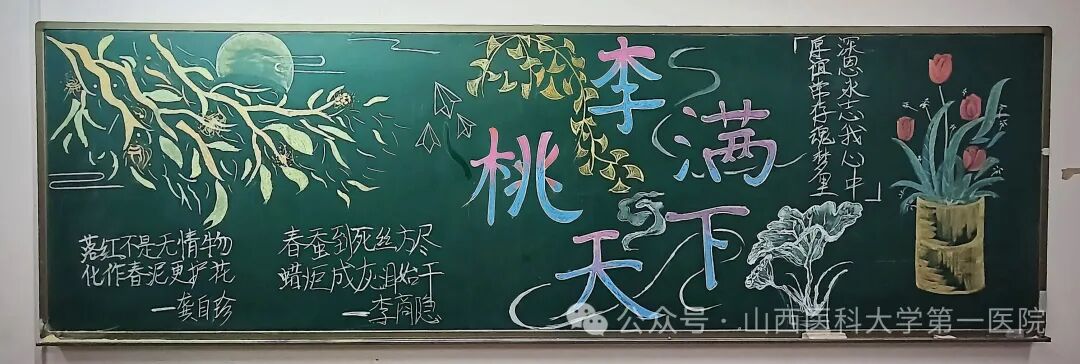 落红不是无情物
化作春泥更护花
—龚自珍
春蚕到死丝方尽
蜡炬成灰泪始干
—李商隐
桃李满天下
「深恩永志我心中
厚谊常存魂梦里」
公众号·山西医科大学第一医院